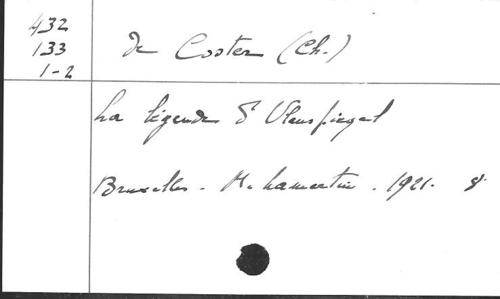 432
133
1-2
de Coster (Ch.)
La légende d'Ulenspiegel
Bruxelles - H. Lamertin. 1921. 8°